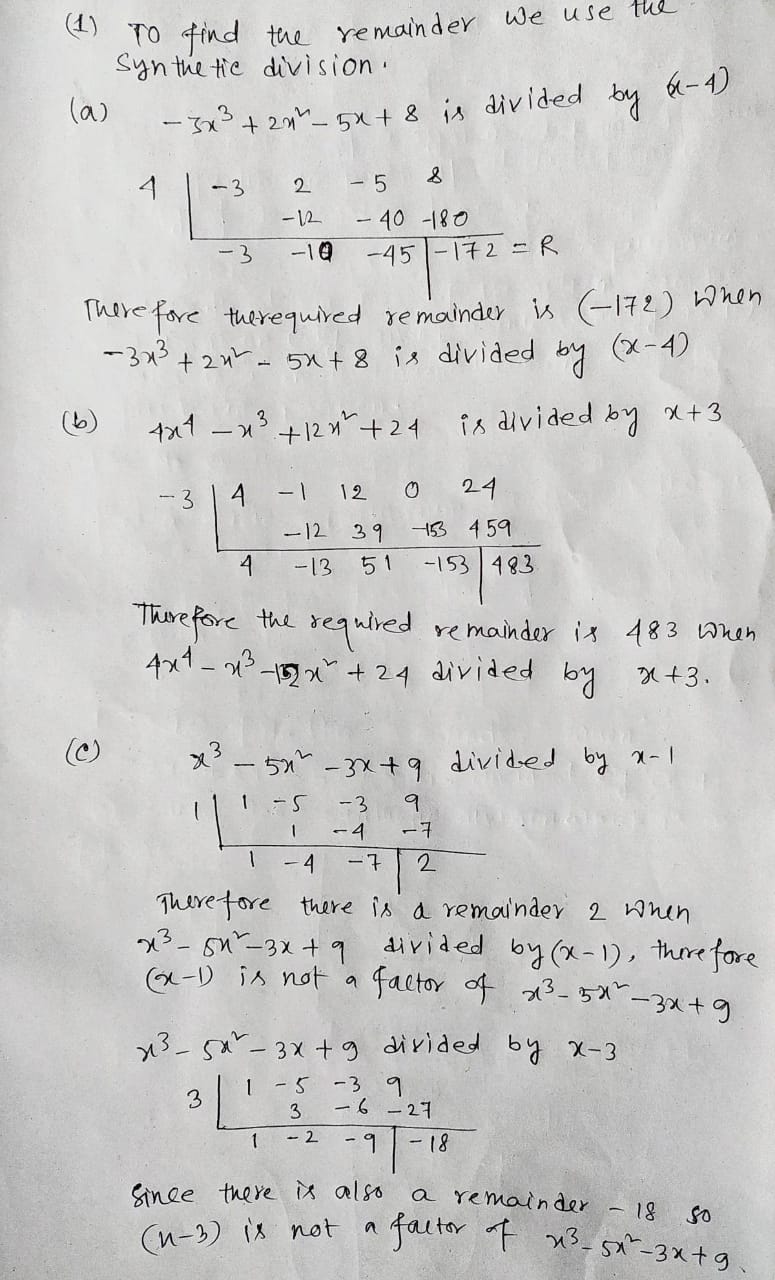 (1) To find the remainder we use the
Synthetic division.
(a) -3x³ + 2x² - 5x + 8 is divided by (x-4)
4 | -3 2 -5 8
-12 -40 -180
-3 -10 -45 | -172 = R
Therefore the required remainder is (-172) when
-3x³ + 2x² - 5x + 8 is divided by (x-4)
(b) 4x⁴ - x³ + 12x² + 24 is divided by x+3
-3 | 4 -1 12 0 24
-12 39 -153 459
4 -13 51 -153 | 483
Therefore the required remainder is 483 when
4x⁴ - x³ -12x² + 24 divided by x+3.
(c) x³ - 5x² - 3x + 9 divided by x-1
1 | 1 -5 -3 9
1 -4 -7
1 -4 -7 | 2
Therefore there is a remainder 2 when
x³ - 5x² - 3x + 9 divided by (x-1), therefore
(x-1) is not a factor of x³ - 5x² - 3x + 9
x³ - 5x² - 3x + 9 divided by x-3
3 | 1 -5 -3 9
3 -6 -27
1 -2 -9 | -18
Since there is also a remainder -18 so
(x-3) is not a factor of x³ - 5x² - 3x + 9.